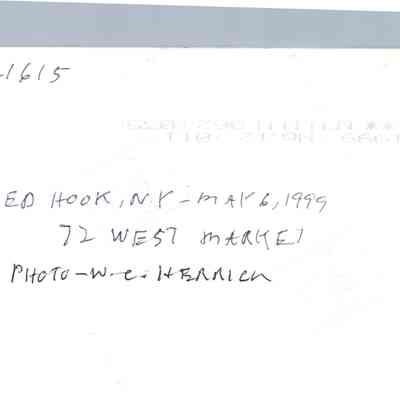 -1615
ED HOOK, N.Y - MAY 6, 1999
72 WEST MARKET
PHOTO-W-C. HERRICK